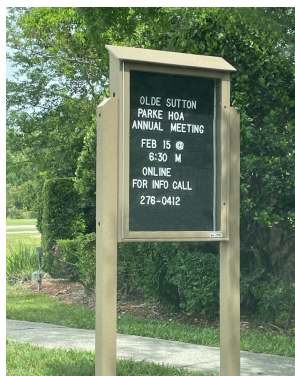 OLDE SUTTON
PARKE HOA
ANNUAL MEETING
FEB 15 @
6:30 M
ONLINE
FOR INFO CALL
276-0412